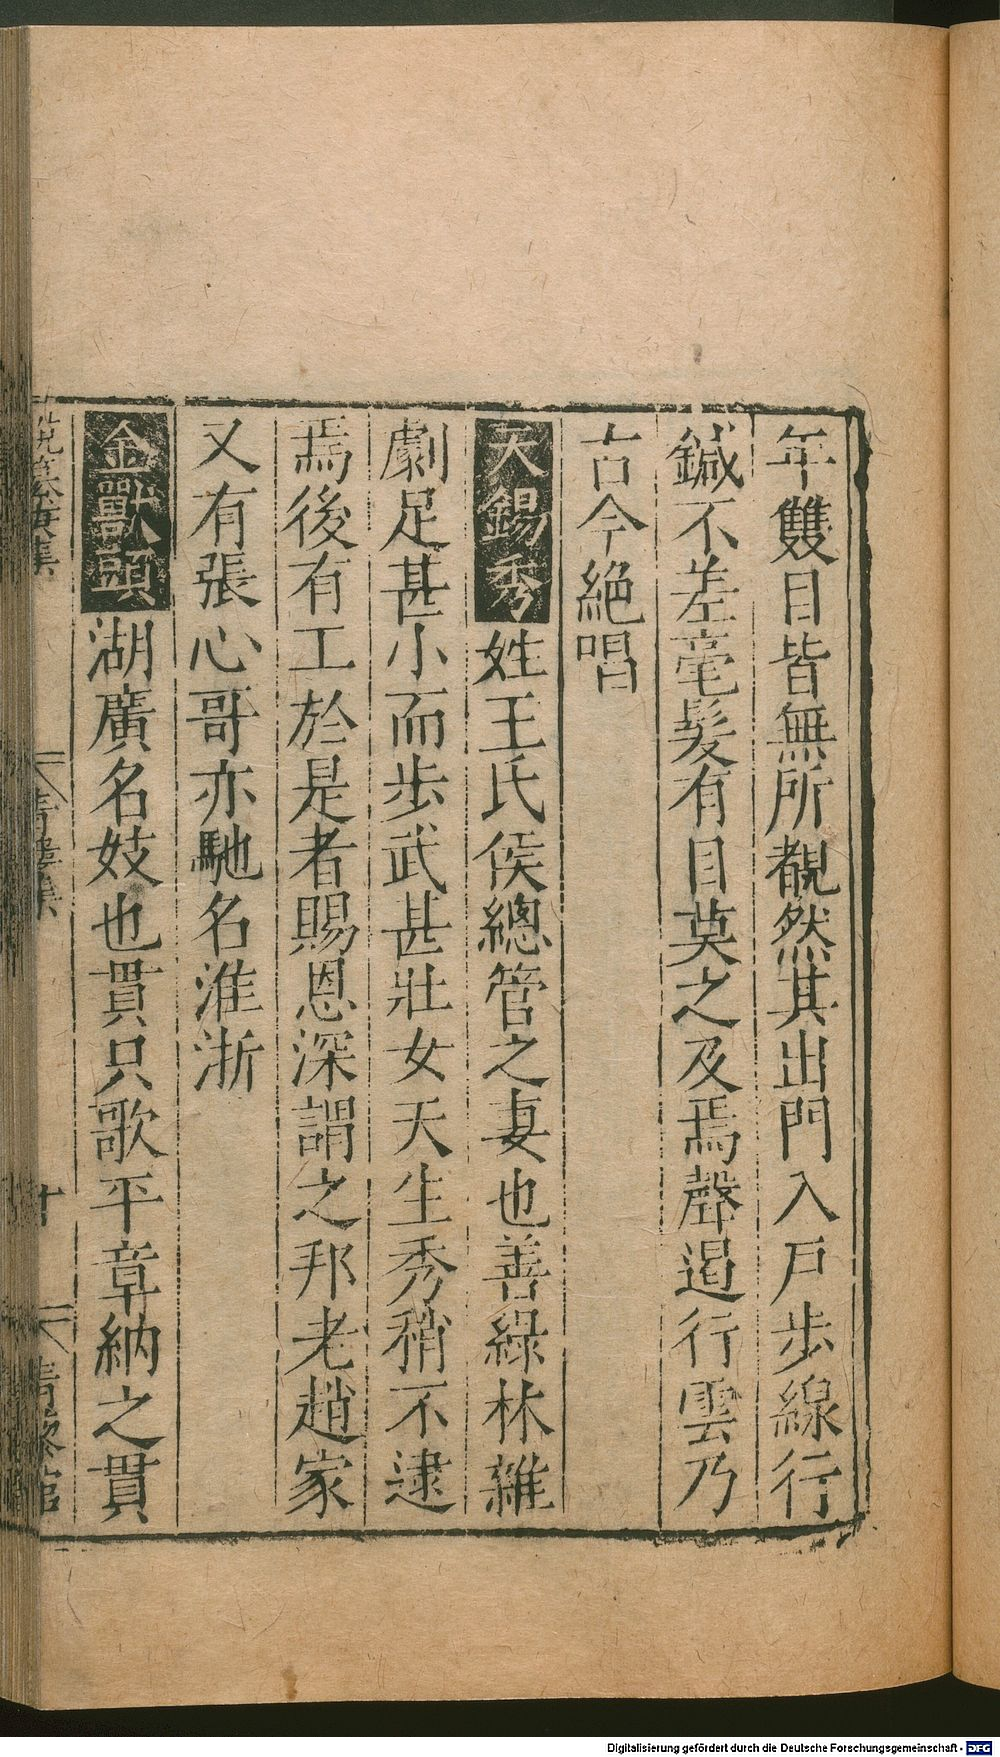 年雙目皆無所覩然其出門入戶步線行
鍼不差毫髮有目莫之及焉聲遏行雲乃
古今絶唱
天錫秀姓王氏侯總管之妻也善綠林雜
劇足甚小而步武甚壯女天生秀稍不逮
焉後有工於是者賜恩深謂之邦老趙家
又有張心哥亦馳名淮浙
金獸頭湖廣名妓也貫只歌平章納之貫
青樓集
十
Digitalisierung gefördert durch die Deutsche Forschungsgemeinschaft - DFG